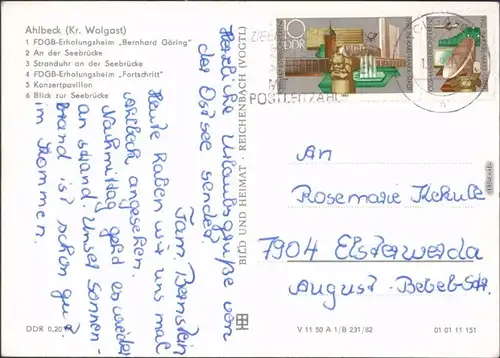 Ahlbeck (Kr. Wolgast)
1 FDGB-Erholungsheim „Bernhard Göring"
2 An der Seebrücke
3 Stranduhr an der Seebrücke
4 FDGB-Erholungsheim „Fortschritt"
5 Konzertpavillon
6 Blick zur Seebrücke
Herzliche Urlaubsgrüße von
der Ostsee sendet
Fam. Bernstein
Heute haben wir uns mal
Ahlbeck angesehen.
Nachmittag geht es wieder
an Strand. Unser Sonnen-
brand ist schon gut
im Kommen.
BILD UND HEIMAT · REICHENBACH (VOGTL)
10
DDR
POSTLEITZAHL
An
Rosemarie Kekule
7904 Elsterwerda
August-Bebel-Str.
DDR 0,20
V 11 50 A 1/B 231/82
01 01 11 151